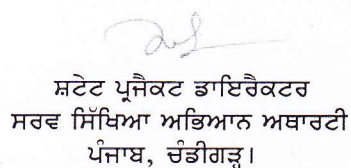 ਸ਼ਟੇਟ ਪ੍ਰਜੈਕਟ ਡਾਇਰੈਕਟਰ
ਸਰਵ ਸਿੱਖਿਆ ਅਭਿਆਨ ਅਥਾਰਟੀ
ਪੰਜਾਬ, ਚੰਡੀਗੜ੍ਹ।